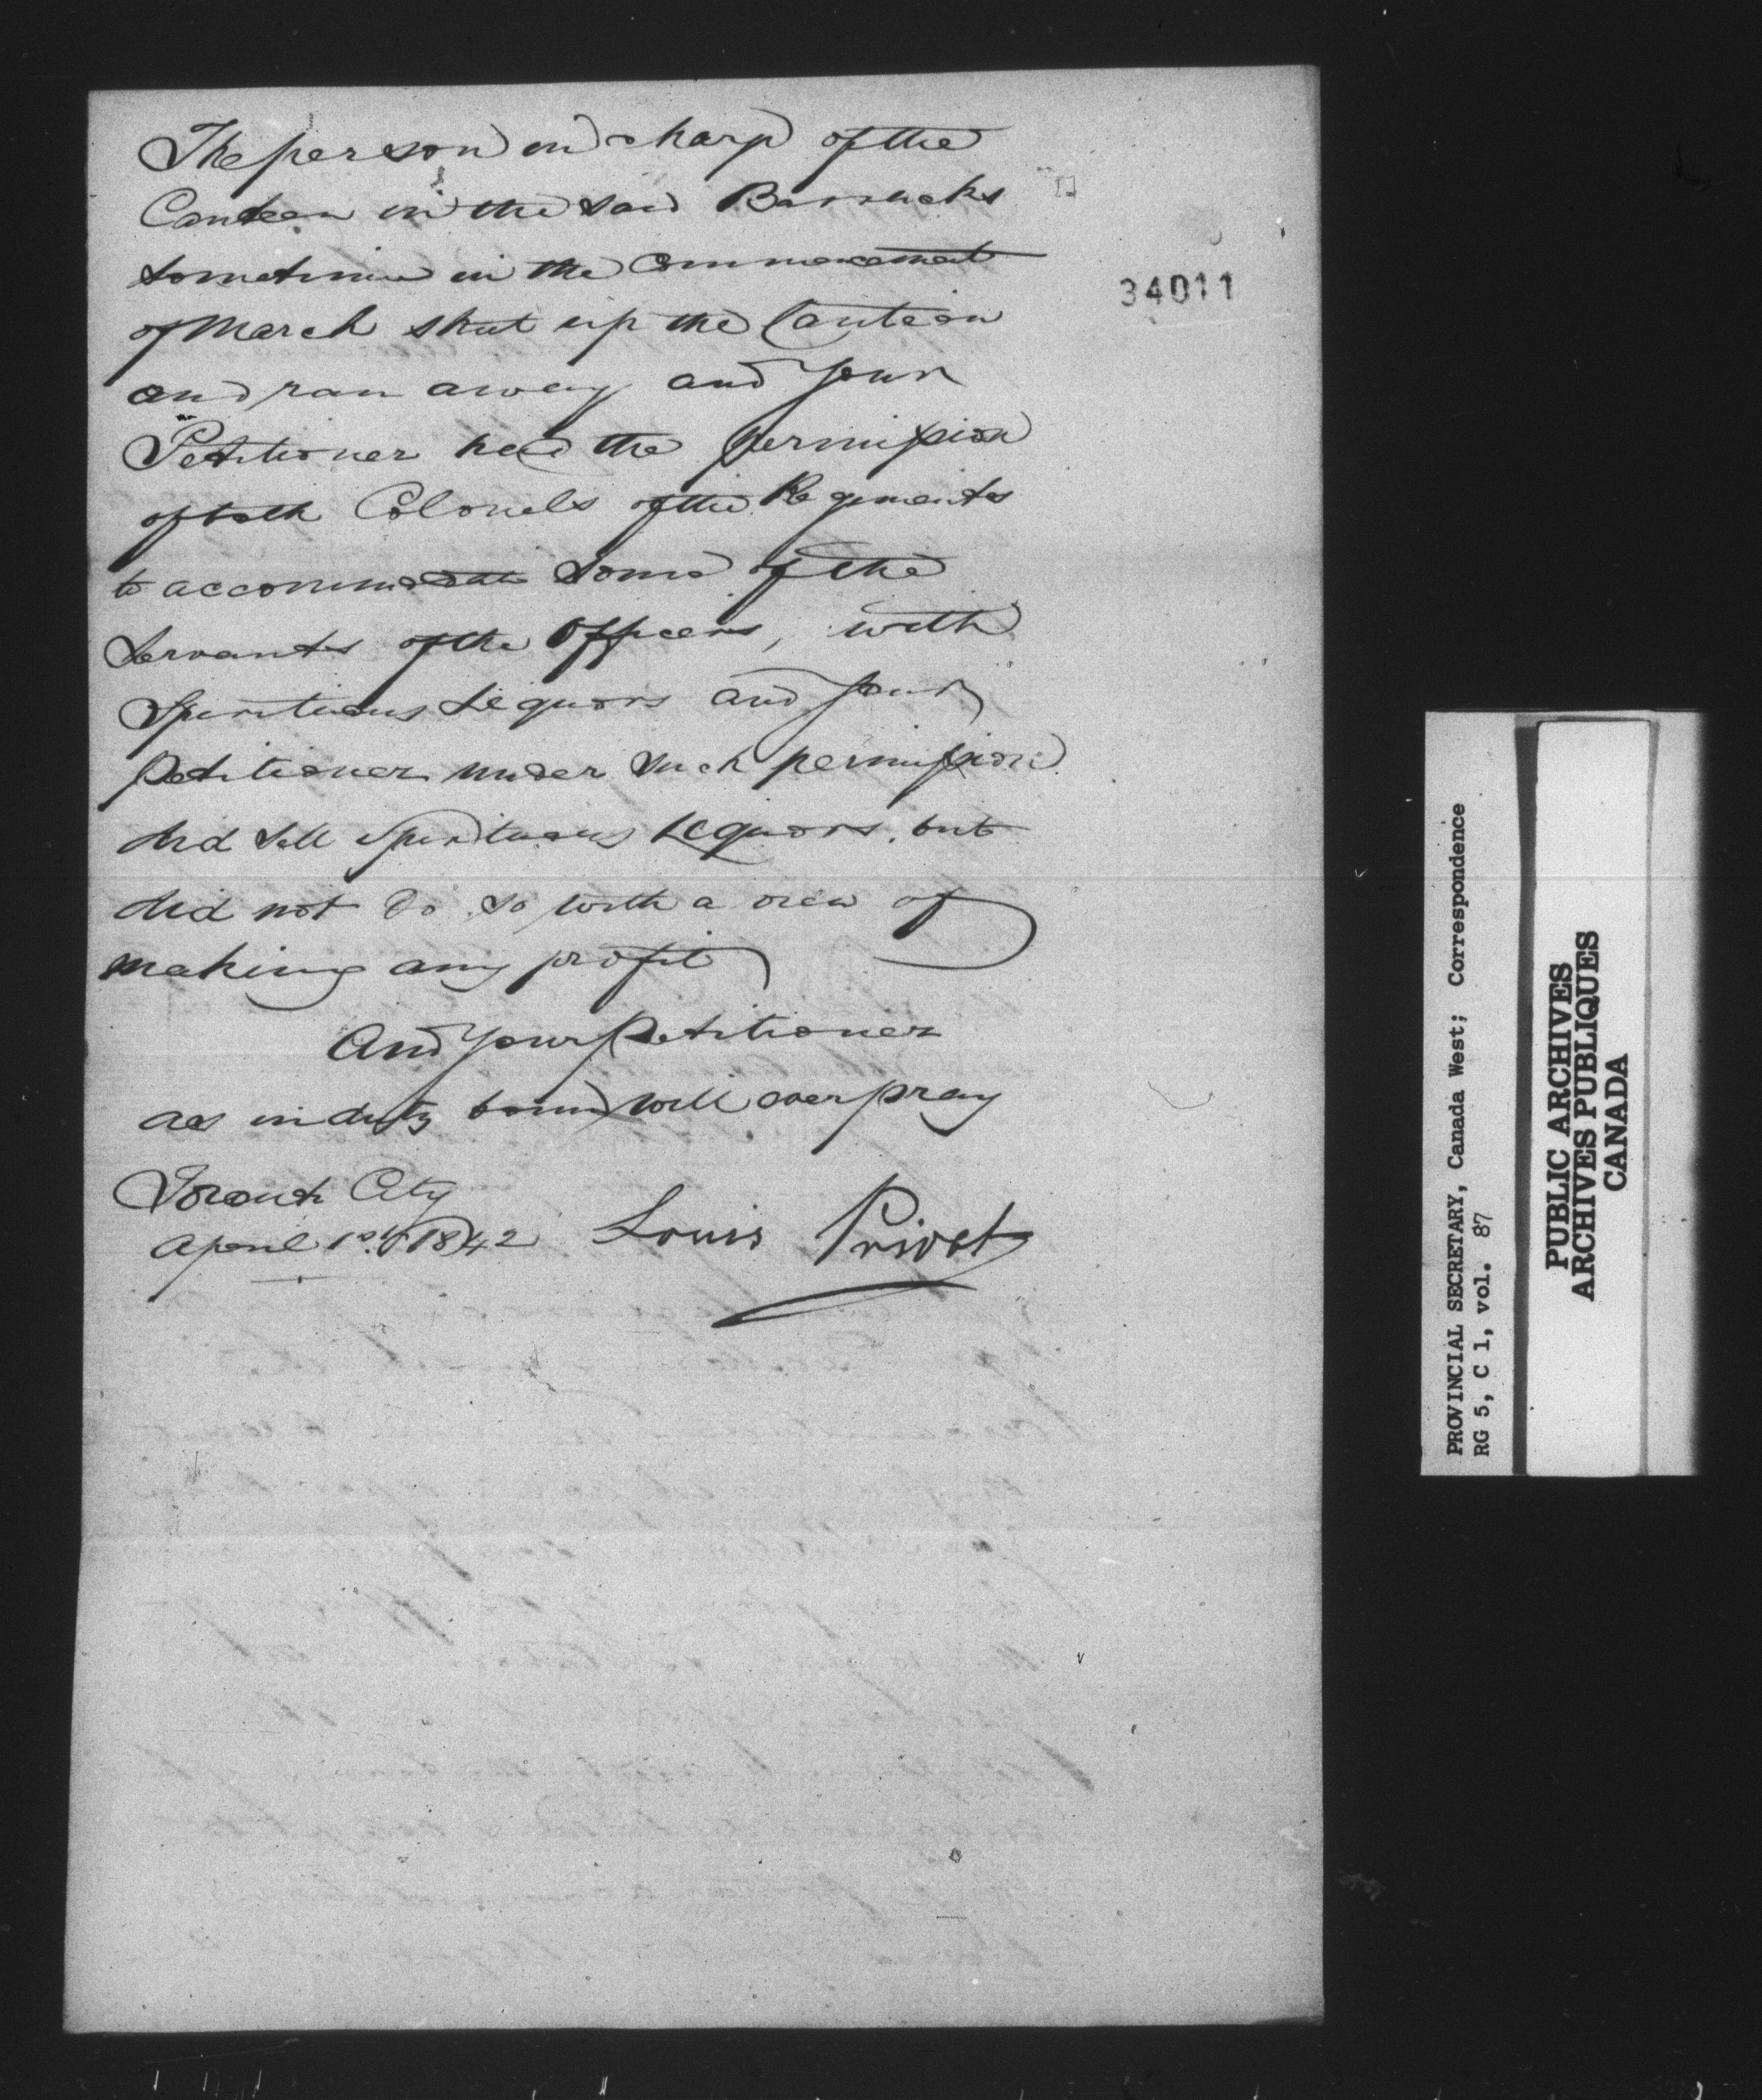 The person in charge of the
Canteen in the said Barracks
sometime in the Commencement
of March shut up the Canteen
and ran away and your
Petitioner had the permission
of both Colonels of the Regiments
to accommodate some of the
Servants of the Officers, with
Spirituous Liquors and your
Petitioner under such permission
did sell Spirituous Liquors. but
did not do so with a view of
making any profit
And your Petitioner
as in duty bound will ever pray
Toronto City
April 1st 1842 Louis Privat
34011
PROVINCIAL SECRETARY, Canada West; Correspondence
RG 5, C 1, vol. 87
PUBLIC ARCHIVES
ARCHIVES PUBLIQUES
CANADA